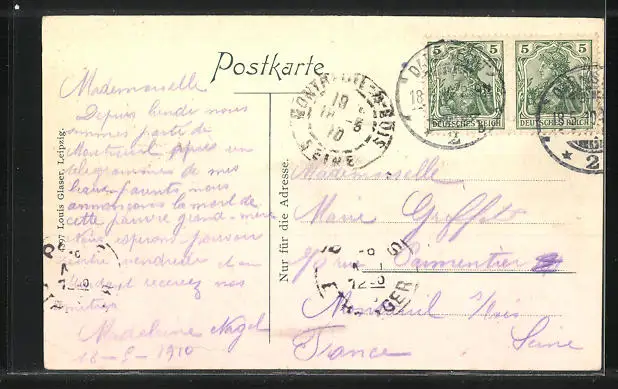 Postkarte
Mademoiselle
Depuis lundi nous
sommes partis de
Montreuil après un
télégramme de mes
beaux-parents, nous
annonçant la mort de
cette pauvre grand-mère
Nous espérons pouvoir
rentrer vendredi
recevez nos
Madeleine Nagel
18-8-1910
497 Louis Glaser, Leipzig.
Nur für die Adresse.
MONTREUIL-S-BOIS
SEINE
5 5
DEUTSCHES REICH DEUTSCHES REICH
Mademoiselle
Marie
rue Parmentier
Montreuil s/Bois
Seine
France